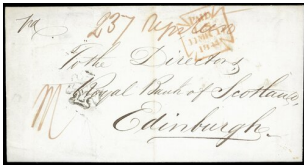 237
PAID
To the Directors
Royal Bank of Scotland
Edinburgh.